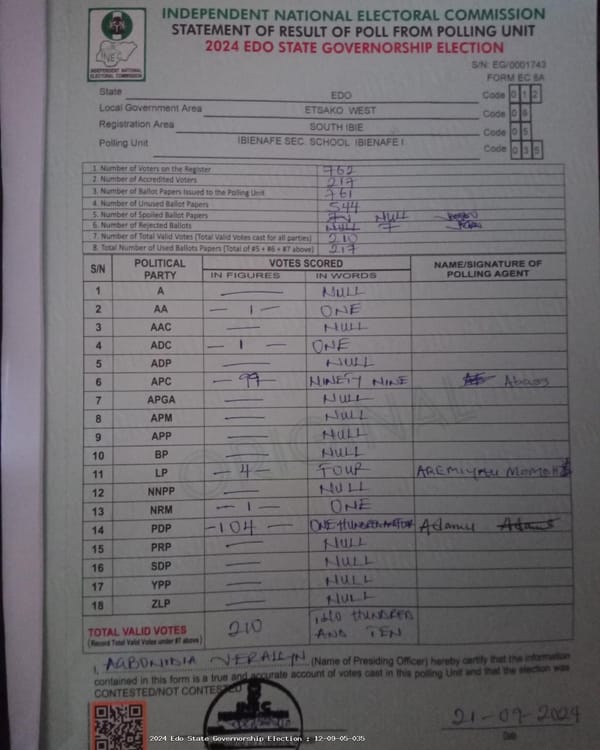 INDEPENDENT NATIONAL ELECTORAL COMMISSION
STATEMENT OF RESULT OF POLL FROM POLLING UNIT
2024 EDO STATE GOVERNORSHIP ELECTION
INEC
INDEPENDENT NATIONAL
ELECTORAL COMMISSION
S/N: EG/0001743
FORM EC 8A
State EDO Code 0 1 2
Local Government Area ETSAKO WEST Code 0 6
Registration Area SOUTH IBIE Code 0 5
Polling Unit IBIENAFE SEC. SCHOOL IBIENAFE I Code 0 3 5
1. Number of Voters on the Register 762
2. Number of Accredited Voters 217
3. Number of Ballot Papers Issued to the Polling Unit 761
4. Number of Unused Ballot Papers 544
5. Number of Spoiled Ballot Papers NULL
6. Number of Rejected Ballots NULL 7
7. Number of Total Valid Votes (Total Valid Votes cast for all parties) 210
8. Total Number of Used Ballots Papers (Total of #5 + #6 + #7 above) 217
S/N POLITICAL PARTY VOTES SCORED NAME/SIGNATURE OF POLLING AGENT
IN FIGURES IN WORDS
1 A — NULL
2 AA — 1 — ONE
3 AAC — NULL
4 ADC — 1 — ONE
5 ADP — NULL
6 APC — 99 NINETY NINE
7 APGA — NULL
8 APM — NULL
9 APP — NULL
10 BP — NULL
11 LP — 4 — FOUR AREMIYAU MOMOH
12 NNPP — NULL
13 NRM — 1 — ONE
14 PDP — 104 — ONE HUNDRED AND FOUR Adamu
15 PRP — NULL
16 SDP — NULL
17 YPP — NULL
18 ZLP — NULL
TOTAL VALID VOTES 210 TWO HUNDRED
(Record Total Valid Votes under #7 above) AND TEN
I, AGBONIDIA VERALYN (Name of Presiding Officer) hereby certify that the information
contained in this form is a true and accurate account of votes cast in this polling Unit and that the election was
CONTESTED/NOT CONTESTED
INEC
21-09-2024
Date
2024 Edo State Governorship Election : 12-09-05-035